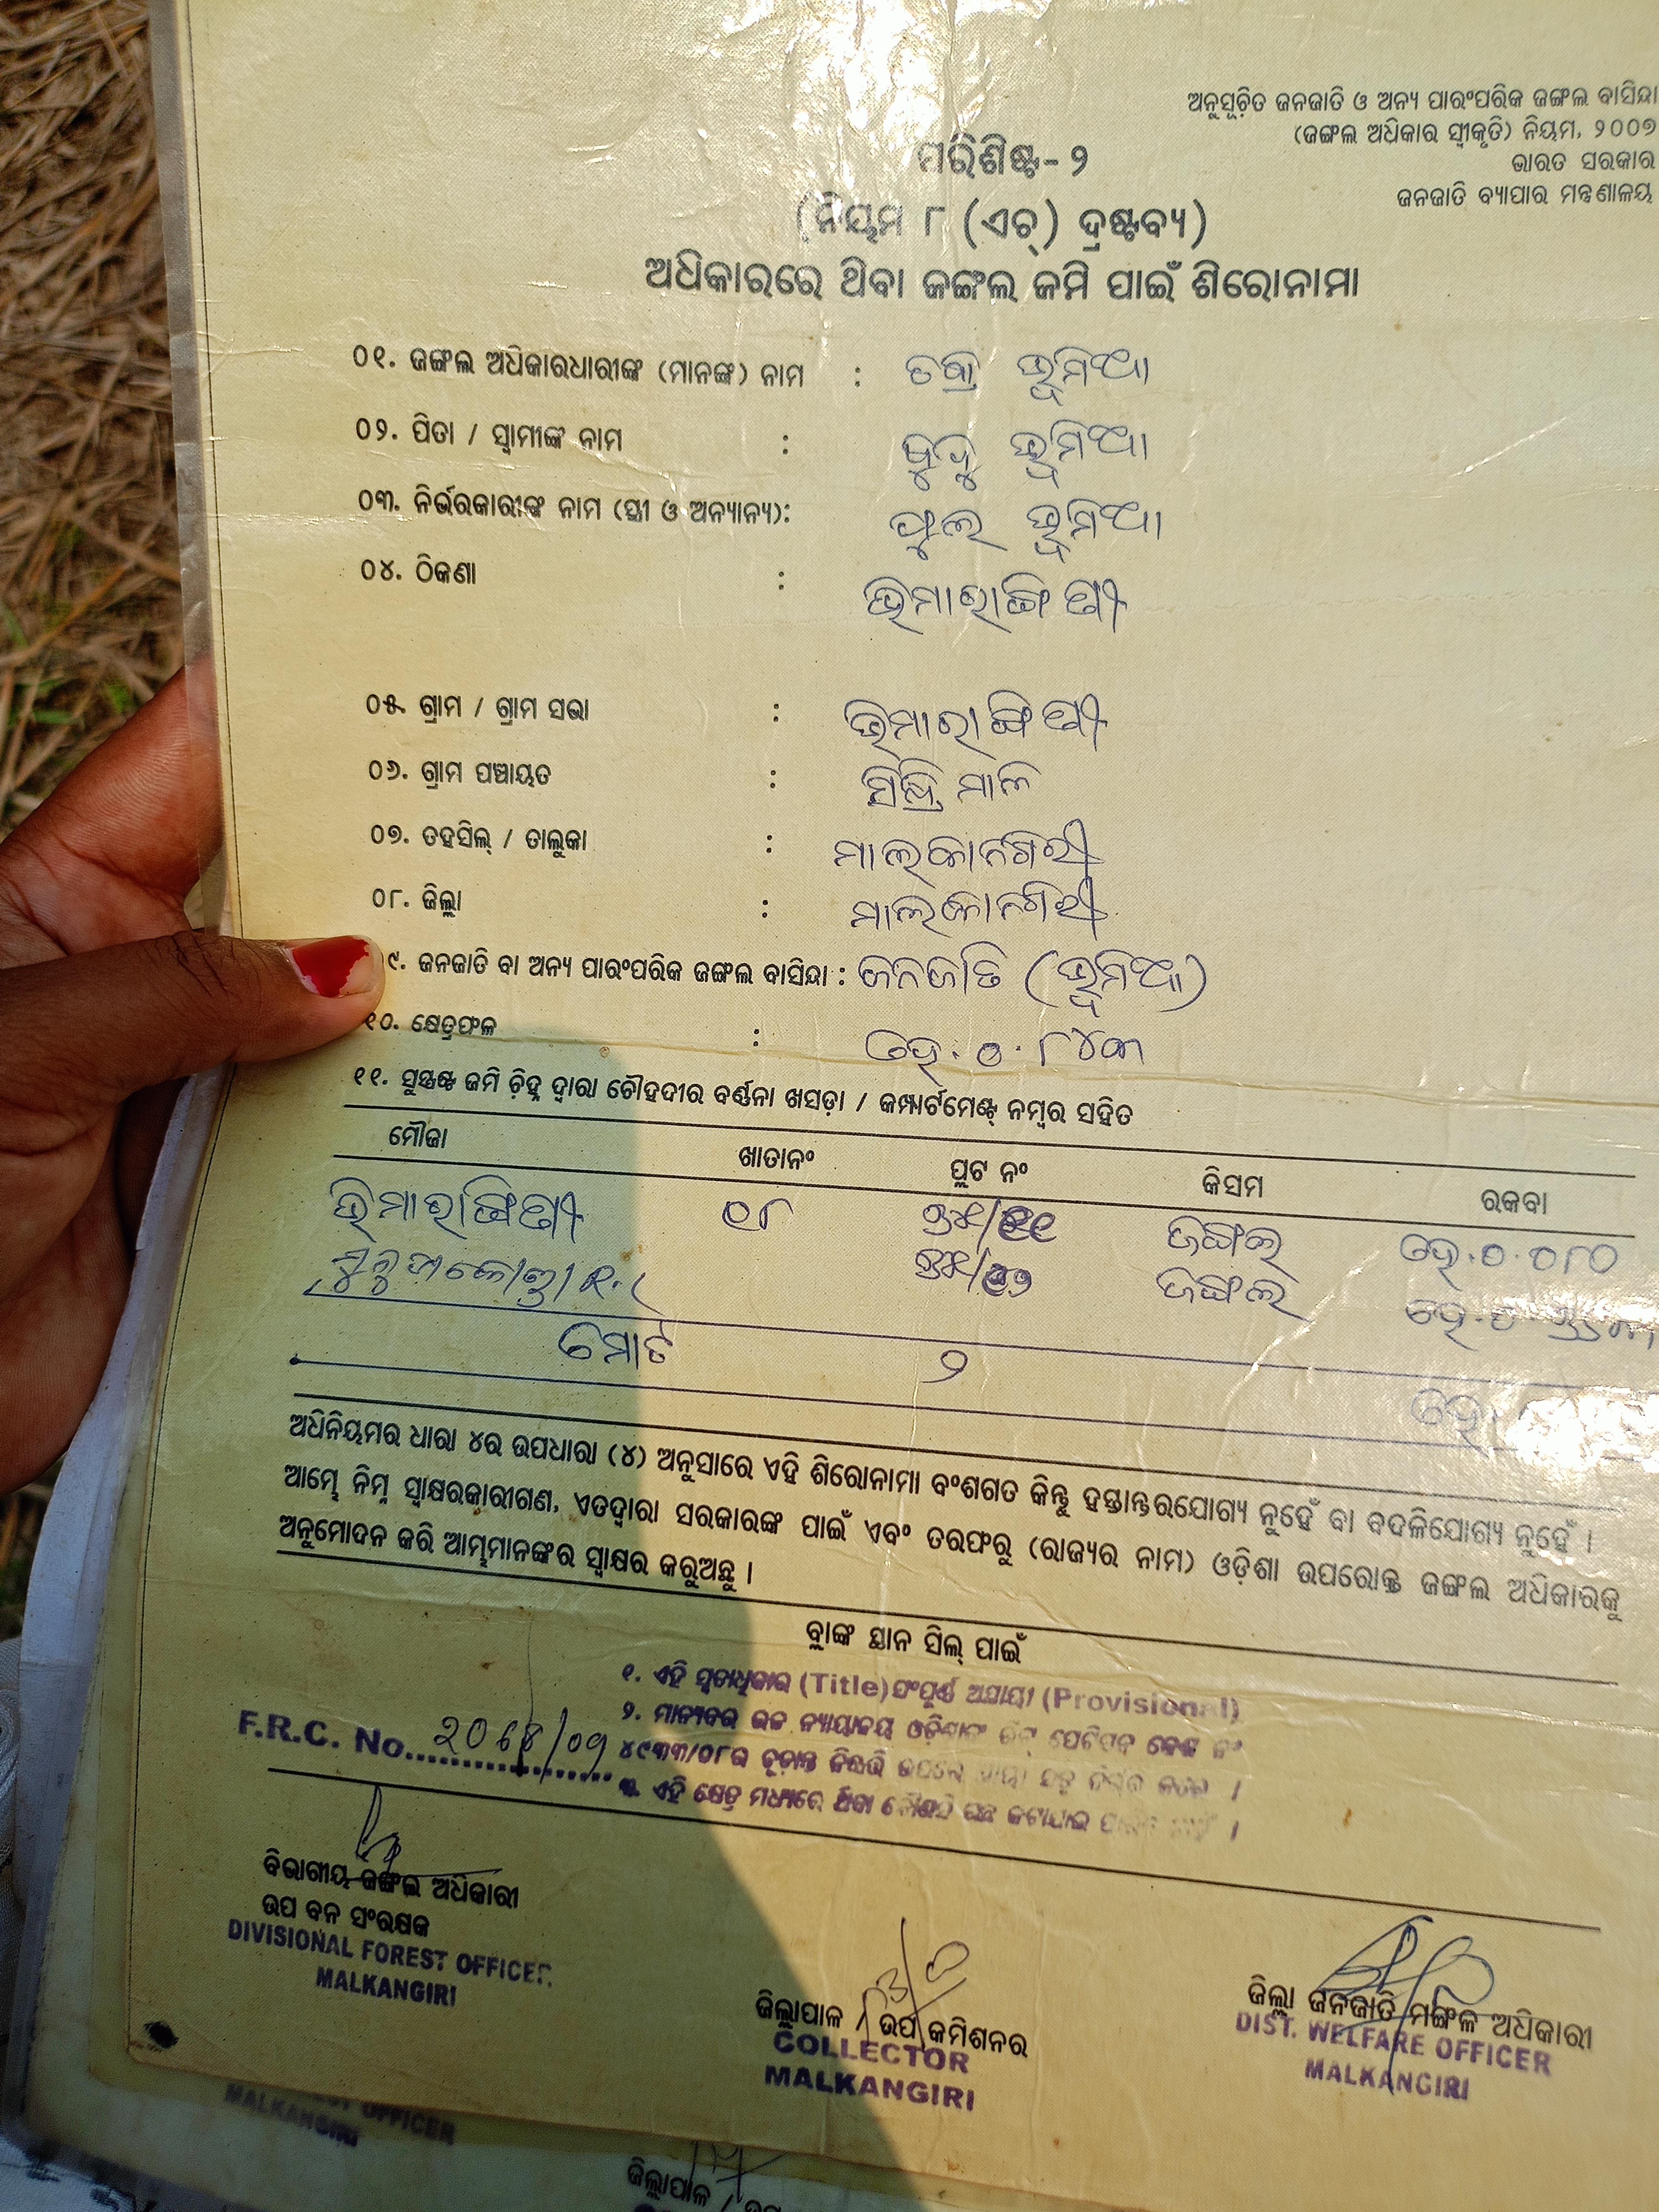 ଅନୁସୂଚିତ ଜନଜାତି ଓ ଅନ୍ୟ ପାରଂପରିକ ଜଙ୍ଗଲ ବାସିନ୍ଦା
(ଜଙ୍ଗଲ ଅଧିକାର ସ୍ୱୀକୃତି) ନିୟମ, ୨୦୦୭
ଭାରତ ସରକାର
ଜନଜାତି ବ୍ୟାପାର ମନ୍ତ୍ରଣାଳୟ
ପରିଶିଷ୍ଟ-୨
(ନିୟମ ୮ (ଏଚ୍) ଦ୍ରଷ୍ଟବ୍ୟ)
ଅଧିକାରରେ ଥିବା ଜଙ୍ଗଲ ଜମି ପାଇଁ ଶିରୋନାମା
୦୧. ଜଙ୍ଗଲ ଅଧିକାରଧାରୀଙ୍କ (ମାନଙ୍କ) ନାମ : ଭୂମିଆ
୦୨. ପିତା / ସ୍ୱାମୀଙ୍କ ନାମ : ଭୂମିଆ
୦୩. ନିର୍ଭରକାରୀଙ୍କ ନାମ (ସ୍ତ୍ରୀ ଓ ଅନ୍ୟାନ୍ୟ): ଫୁଲ ଭୂମିଆ
୦୪. ଠିକଣା :
୦୫. ଗ୍ରାମ / ଗ୍ରାମ ସଭା :
୦୬. ଗ୍ରାମ ପଞ୍ଚାୟତ :
୦୭. ତହସିଲ୍ / ତାଲୁକା : ମାଲକାନଗିରୀ
୦୮. ଜିଲ୍ଲା : ମାଲକାନଗିରୀ
୯. ଜନଜାତି ବା ଅନ୍ୟ ପାରଂପରିକ ଜଙ୍ଗଲ ବାସିନ୍ଦା : ଜନଜାତି (ଭୂମିଆ)
୧୦. କ୍ଷେତ୍ରଫଳ : ହେ. ୦.୮୪୩
୧୧. ସୁସ୍ପଷ୍ଟ ଜମି ଚିହ୍ନ ଦ୍ୱାରା ଚୌହଦୀର ବର୍ଣ୍ଣନା ଖସଡ଼ା / କମ୍ପାର୍ଟମେଣ୍ଟ୍ ନମ୍ବର ସହିତ
ମୌଜା ଖାତାନଂ ପ୍ଲଟ ନଂ କିସମ ରକବା
୯୮ ଜଙ୍ଗଲ ହେ.୦.୦୮୦
ଜଙ୍ଗଲ ହେ.୦.
ମୋଟ ୨ ହେ.
ଅଧିନିୟମର ଧାରା ୪ର ଉପଧାରା (୪) ଅନୁସାରେ ଏହି ଶିରୋନାମା ବଂଶଗତ କିନ୍ତୁ ହସ୍ତାନ୍ତରଯୋଗ୍ୟ ନୁହେଁ ବା ବଦଳିଯୋଗ୍ୟ ନୁହେଁ ।
ଆମ୍ଭେ ନିମ୍ନ ସ୍ୱାକ୍ଷରକାରୀଗଣ, ଏତଦ୍ୱାରା ସରକାରଙ୍କ ପାଇଁ ଏବଂ ତରଫରୁ (ରାଜ୍ୟର ନାମ) ଓଡ଼ିଶା ଉପରୋକ୍ତ ଜଙ୍ଗଲ ଅଧିକାରକୁ
ଅନୁମୋଦନ କରି ଆମ୍ଭମାନଙ୍କର ସ୍ୱାକ୍ଷର କରୁଅଛୁ ।
ବ୍ଲାଙ୍କ ସ୍ଥାନ ସିଲ୍ ପାଇଁ
୧. ଏହି ସ୍ୱତ୍ତାଧିକାର (Title) ସଂପୂର୍ଣ୍ଣ ଅସ୍ଥାୟୀ (Provisional)
୨. ମାନ୍ୟବର ଉଚ୍ଚ ନ୍ୟାୟାଳୟ ଓଡ଼ିଶାଙ୍କ ରିଟ୍ ପେଟିସନ କେଶ ନଂ
୪୯୩୩/୦୮ର ଚୂଡ଼ାନ୍ତ ନିଷ୍ପତ୍ତି ଉପରେ
୩. ଏହି କ୍ଷେତ୍ର ମଧ୍ୟରେ ଥିବା କୌଣସି ଗଛ କଟାଯାଇ
F.R.C. No.
ବିଭାଗୀୟ ଜଙ୍ଗଲ ଅଧିକାରୀ
ଉପ ବନ ସଂରକ୍ଷକ
DIVISIONAL FOREST OFFICER
MALKANGIRI
ଜିଲ୍ଲାପାଳ / ଉପ କମିଶନର
COLLECTOR
MALKANGIRI
ଜିଲ୍ଲା ଜନଜାତି ମଙ୍ଗଳ ଅଧିକାରୀ
DIST. WELFARE OFFICER
MALKANGIRI
OFFICER
MALKANGIRI
ଜିଲ୍ଲାପାଳ /